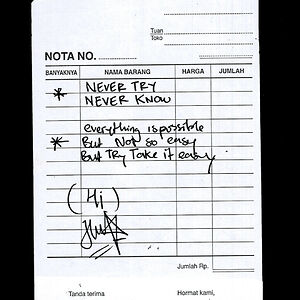 Tuan
Toko
NOTA NO.
BANYAKNYA NAMA BARANG HARGA JUMLAH
* NEVER TRY
NEVER KNOW
everything is possible
* But Not so easy
But Try Take it easy
(Hi)
Jumlah Rp.
Tanda terima Hormat kami,